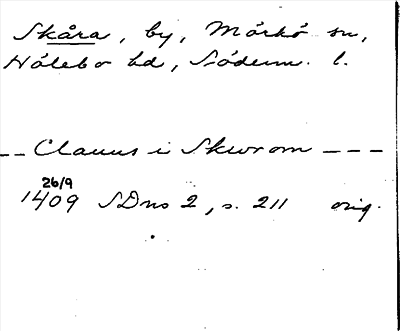 Skåra, by, Mörkö sn,
Hölebo hd, Söderm. l.
-- Clauus i Skurom ---
26/9
1409 SDns 2, s. 211 orig.